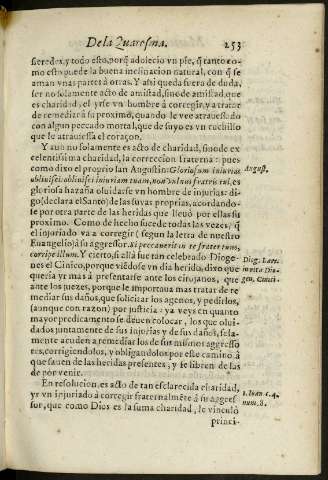 De la Quaresma. 253
ser edex, y todo esto, porq̃ adolecio vn pie, q̃ tanto co-
mo esto puede la buena inclinacion natural, con q̃ se
aman vnas partes à otras. Y asi queda fuera de duda,
ser no solamente acto de amistad, sino de amistad, que
es charidad, el yrse vn hombre à corregir, y a tratar
de remediar à su proximo, quando le vee atrauessado
con algun peccado mortal, que de suyo es vn cuchillo
que le atrauiessa el coraçon.
Y aun no solamente es acto de charidad, sino de ex
celentissima charidad, la correccion fraterna: pues
como dixo el proprio san Augustin: Gloriosum iniurias
obliuisci: obliuisci iniuriam tuam, non vulnus fratris tui, es
gloriosa hazaña oluidarse vn hombre de injurias: di-
go (declara el Santo) de las suyas proprias, acordando-
se por otra parte de las heridas que lleuò por ellas su
proximo. Como de hecho sucede todas las vezes, q̃
el injuriado va a corregir (segun la letra de nuestro
Euangelio) à su aggressor. Si peccauerit in te frater tuus,
corripe illum. Y cierto, si allà fue tan celebrado Dioge-
nes el Cinico, porque viẽdose vn dia herido, dixo que
queria yr mas à presentarse ante los cirujanos, que
ante los juezes, porque le importaua mas tratar de re
mediar sus daños, que solicitar los agenos, y pedirlos,
(aunque con razon) por justicia: ya veys en quanto
mayor predicamento se deuen colocar, los que olui-
dados juntamente de sus injurias y de sus daños, sola-
mente acuden a remediar los de sus mismos aggresso
res, corrigiendolos, y obligandolos por este camino à
que sanen de las heridas presentes, y se libren de las
de por venir.
En resolucion, es acto de tan esclarecida charidad,
yr vn injuriado à corregir fraternalmẽte à su aggres
sor, que como Dios es la suma charidad, le vinculò
princi-
August.
Diog. Laer.
in vita Dio-
gen. Cinici.
1. Ioan. c. 4.
num. 8.